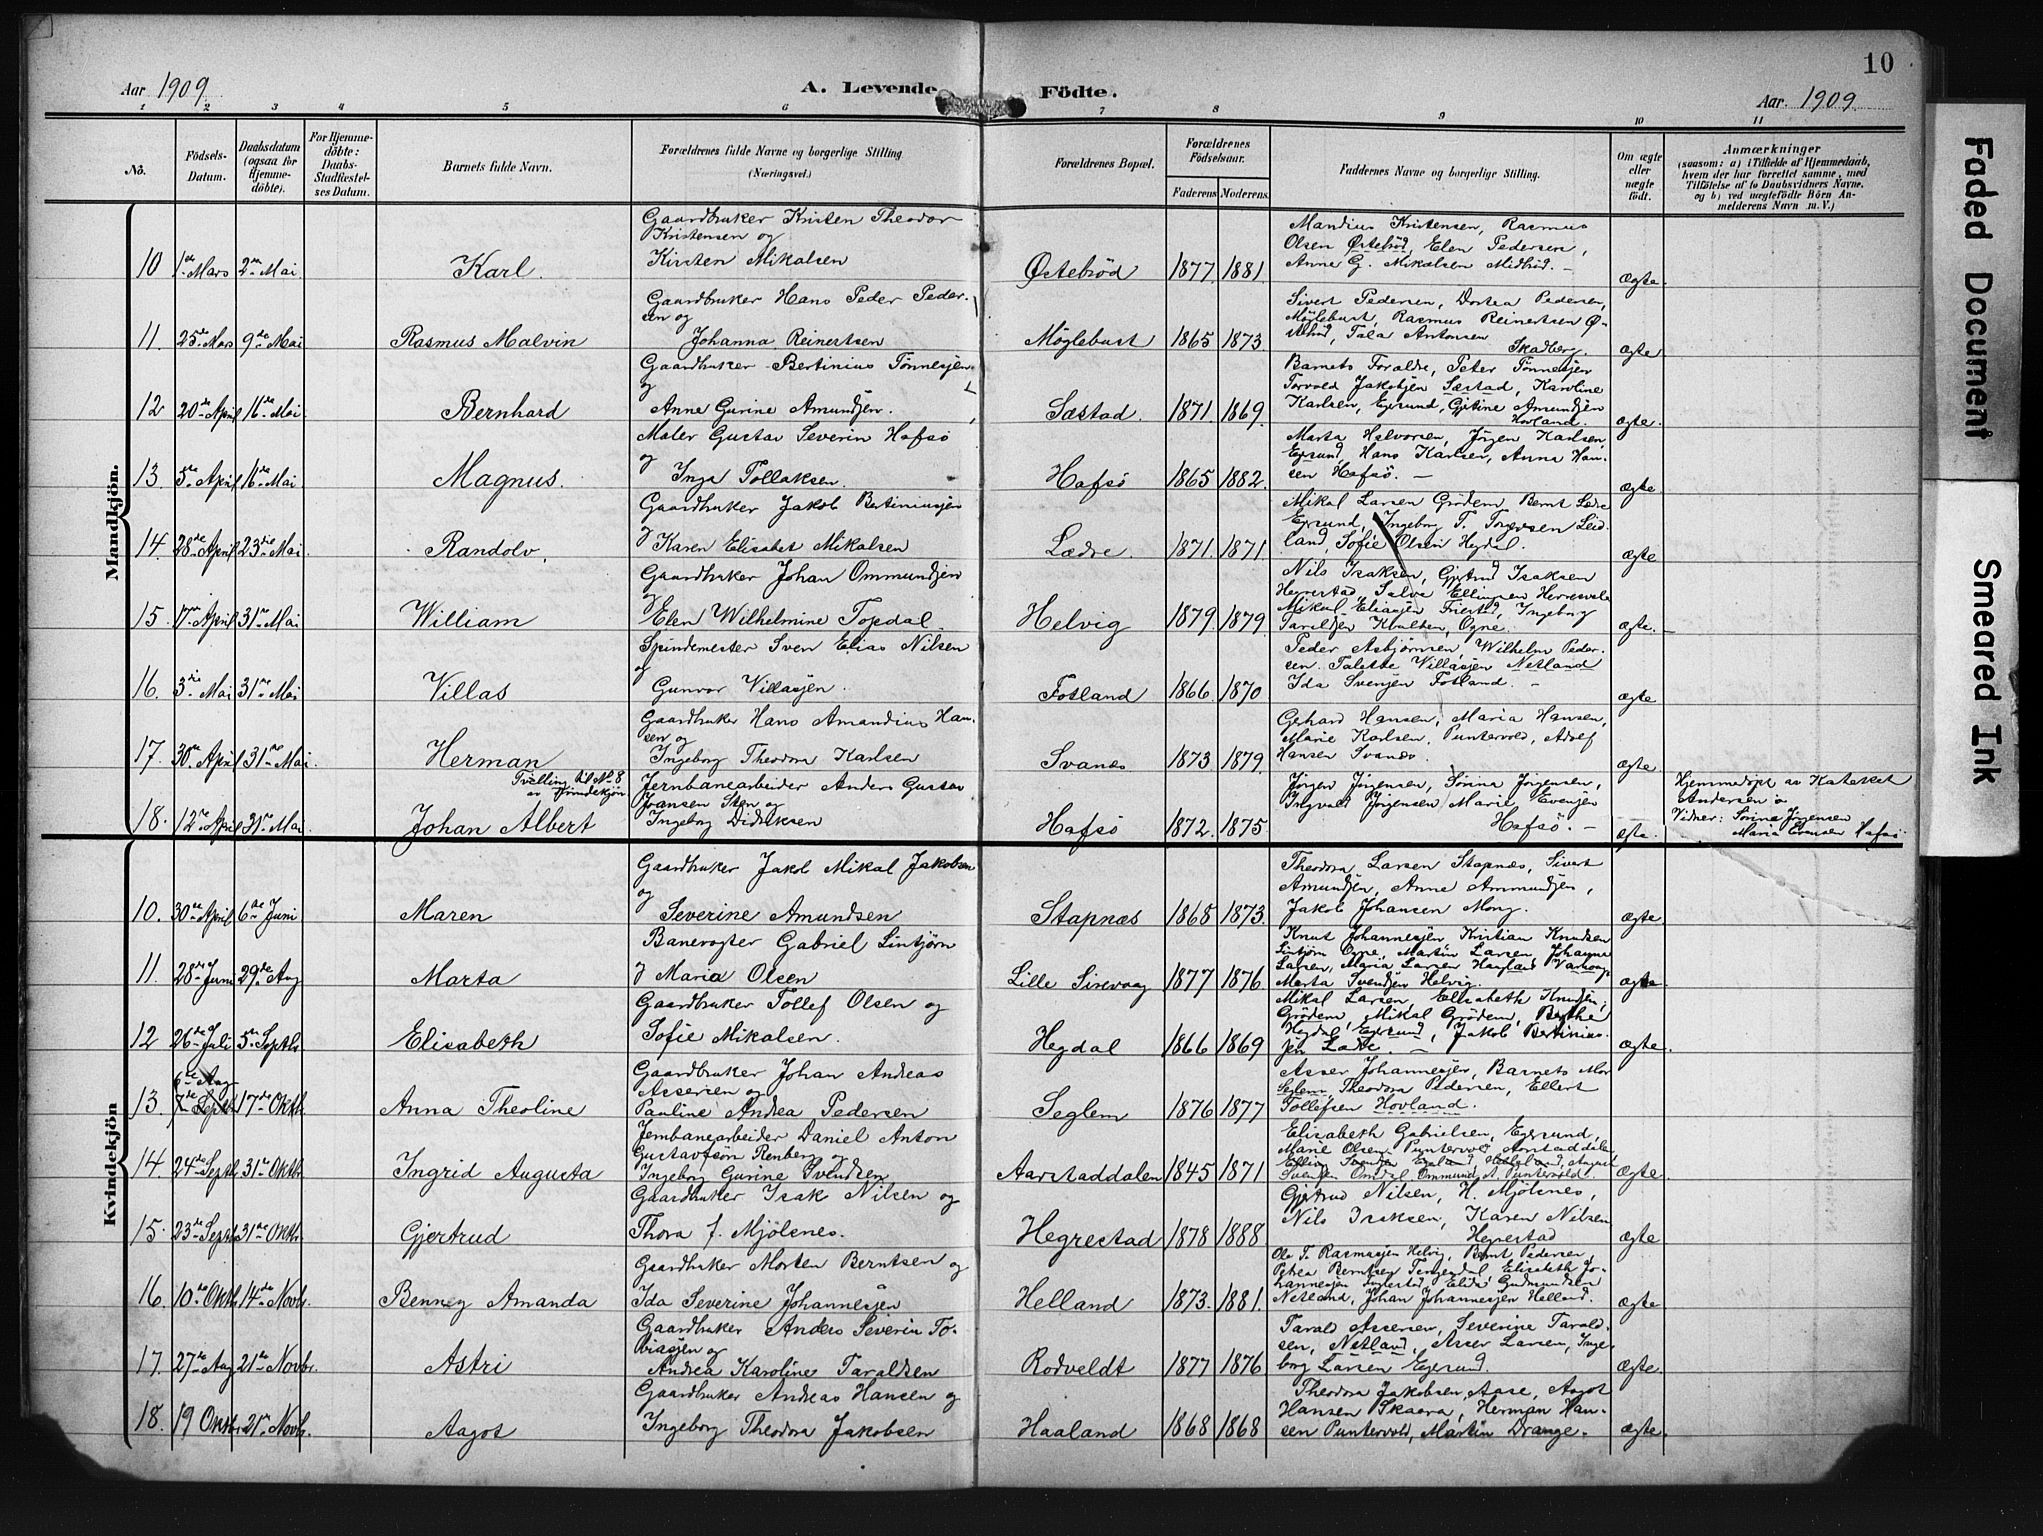 10
Aar 1909
A. Levende Födte.
Aar 1909
1 2 3 4 5 6 7 8 9 10 11
No.
Födsels-Datum.
Daabsdatum (ogsaa for Hjemme-döbte).
For Hjemme-döbte: Daabs-Stadfæstel-ses Datum.
Barnets fulde Navn.
Forældrenes fulde Navne og borgerlige Stilling
(Næringsvei.)
Forældrenes Bopæl.
Forældrenes Födselsaar.
Faderens Moderens
Faddernes Navne og borgerlige Stilling.
Om ægte eller nægte födt.
Anmærkninger
(saasom: a) i Tilfælde af Hjemmedaab, hvem der har forrettet samme, med Tilföielse af to Daabsvidners Navne, og b) ved uægtefödte Börn An-melderens Navn m. V.)
Mandkjön.
10 1ste Mars 2den Mai Karl.
Gaardbruker Kristen Theodor
Kristensen og
Kirsten Mikalsen
Østebröd 1877. 1881.
Mandius Kristensen, Rasmus
Olsen Østebröd, Elen Pedersen,
Anne G. Mikalsen Midbröd. –
ægte.
11. 25de Mars 9de Mai Rasmus Malvin
Gaardbruker Hans Peder Peder-
sen og
Johanna Reinertsen
Møglebust 1865 1873.
Sivert Pedersen, Dortea Pedersen,
Møglebust, Rasmus Reinertsen Ø-
stebröd, Tala Antonsen
Skadberg.
ægte
12 20de April 16de Mai. Bernhard
Gaardbruker Bertinius Tönnesjen
og
Anne Gurine Amundsjen.
Sæstad. 1871. 1869.
Barnets Forældre, Peter Tönnesjen
Torvald Jakobsjen Sæstad, Karoline
Karlsen, Egersund, Gjertine Amundsjen
Hovland.
ægte.
13. 5te April 16de Mai Magnus.
Maler Gustav Severin Hafsö
og
Inga Tollaksen.
Hafsö 1865 1882.
Marta Halvorsen, Jörgen Karlsen,
Egersund, Hans Karlsen, Anna Han-
sen Hafsö. –
ægte.
14. 28de April 23de Mai. Randolv.
Gaardbruker Jakob Bertiniusjen
og Karen Elisabet Mikalsen
Lædre. 1871. 1871.
Mikal Larsen Grödem, Bernt Lædre
Egersund, Ingeborg T. Leid-
land, Sofie Olsen Hegdal.
ægte
15. 17de April 31te Mai William
Gaardbruker Johan Ommundsjen
og
Elen Wilhelmine Topdal.
Helvig 1879. 1879
Nils Isaksen, Gjertrud Isaksen
Hegrestad, Salve Ellingsen
Mikal Eliasjen Friestad, Ingeborg
Ogne.
ægte.
16. 3die Mai 31te Mai Villas
Spindemester Sven Elias Nilsen
og
Gunvor Villasjen.
Fotland 1866. 1870
Peder Asbjörnsen, Wilhelm Peder-
sen, Talette Villasjen Netland
Ida Svensjen Fotland. –
ægte
17. 30te April 31te Mai. Herman
Gaardbruker Hans Amandius Han-
sen og
Ingeborg Theodora Karlsen
Svanæs 1873 1879.
Gerhard Hansen, Maria Hansen,
Marie Karlsen, Puntervold, Adolf
Hansen Svanæs.
ægte.
Tvilling til No 8
av Kvindekjön
18. 12te April 31te Mai. Johan Albert
Jernbanearbeider Anders Gustav
Joransen Sten og
Ingeborg Didriksen
Hafsö 1872. 1875
Jörgen Jörgensen, Sorina Jörgensen,
Ingvald Jörgensen, Marie Evensen
Hafsö. –
egte.
Hjemmedöpt av Kateket
Andersen
Vidner: Sorina Jörgensen
Maria Evensen Hafsö.
Kvindekjön
10. 30te April 6te Juni Maren
Gaardbruker Jakob Mikal Jakobsen
og
Severine Amundsen
Stapnæs 1868 1873.
Theodora Larsen Stapnæs, Sivert
Amundsjen, Anne Ammundsjen,
Jakob Johansen Mong.
ægte
11. 28de Juni 29de Aug Marta
Banevogter Gabriel Sintjörn
og Maria Olsen
Lille Sirevaag 1877 1876
Knut Johannesjen, Kristian Knudsen
Sintjörn Ogne, Martin Larsen, Johanne
Larsen, Maria Larsen
Marta Svendsjen Helvig.
ægte
12 26de Juli 5te Septbr. Elisabeth
Gaardbruker Tollef Olsen og
Sofie Mikalsen.
Hegdal 1866 1869
Mikal Larsen, Elisabeth Knudsjen,
Grödem, Mikal Grödem, Berthe
Hegdal, Egersund, Jakob Bertinius-
jen Lædre. –
ægte.
13. 6te Aug
7de Septbr. 17de Oktbr. Anna Theoline
Gaardbruker Johan Andreas
Assersen og
Pauline Andrea Pedersen
Seglem 1876 1877
Asser Johannesjen, Barnets Mor
Seglem, Theodora Pedersen, Ellert
Tollefsen Hovland.
ægte
14. 24de Septbr. 31te Oktbr. Ingrid Augusta
Jernbanearbeider Daniel Anton
Gustavfson Renberg og
Ingeborg Gurine Svendsen
Aarstaddalen 1845 1871
Elisabeth Gabrielsen, Egersund,
Marie Olsen Puntervold, Aarstaddalen
ægte
15. 23de Septbr. 31te Oktbr. Gjertrud
Gaardbruker Isak Nilsen og
Thora f. Mjölsnes.
Hegrestad 1878 1888
Gjertrud Nilsen, H. Mjölsnes,
Nils Isaksen, Karen Nilsen
Hegrestad
ægte
16. 10de Oktbr. 14de Novbr. Benney Amanda
Gaardbruker Morten Berntsen og
Ida Severine Johannesjen
Helland 1873. 1881.
Ole T. Rasmussjen Helvig, Bernt Pedersen,
Petrea Berntsen Tengesdal, Elisabeth Jo-
hannesjen, Elida Gudmundsen
Netland, Johan Johannesjen Helland.
ægte
17. 27de Aug 21de Novbr. Astri
Gaardbruker Anders Severin To-
biasjen og
Andrea Karoline Taraldsen
Rodveldt 1877 1876
Tarald Assersen, Severine Tarald-
sen, Netland, Asser Larsen, Inge-
borg Larsen Egersund.
ægte
18. 19 Oktbr. 21de Novbr. Aagot
Gaardbruker Andreas Hansen og
Ingeborg Theodora Jakobsen
Haaland 1868 1868
Theodora Jakobsen Aase, Aagot
Hansen Skaara, Herman Han-
sen Puntervold, Martin Drange.
ægte.
Faded Document
Smeared Ink